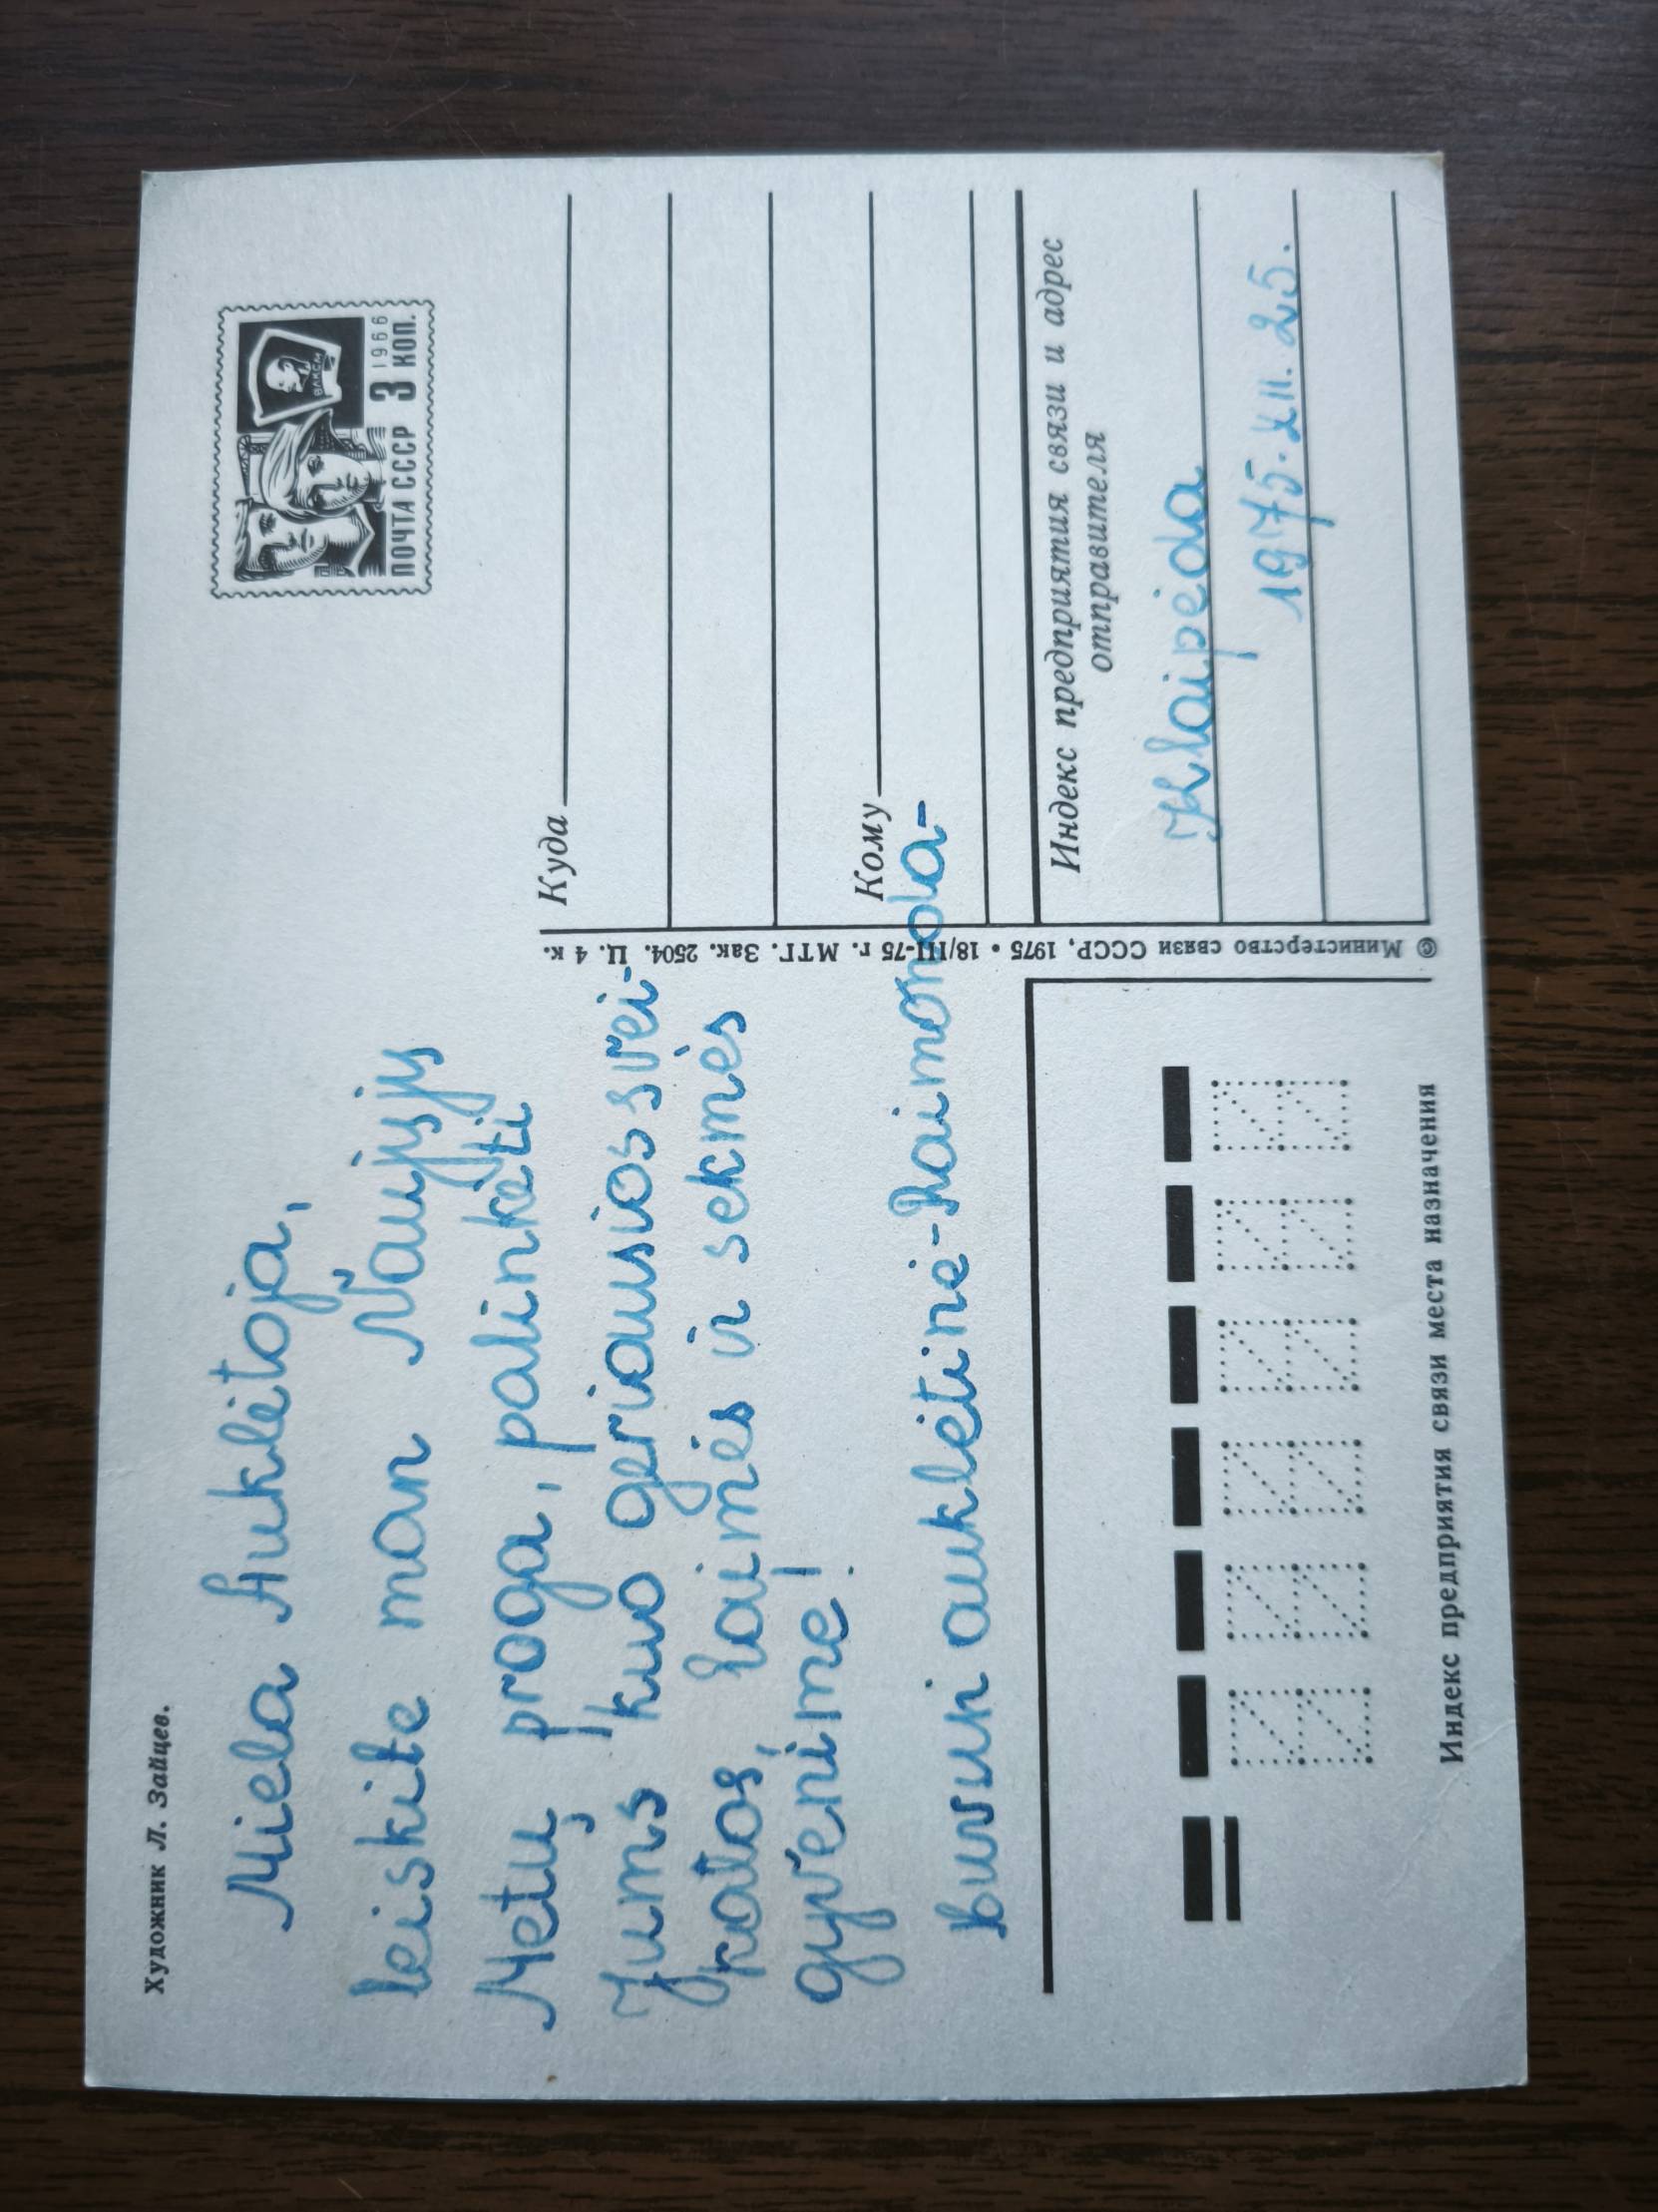 Художник Л. Зайцев.
Miela Auklėtoja,
leiskite man Naujųjų
Metų proga, palinkėti
Jums kuo geriausios svei-
katos, laimės ir sėkmės
gyvenime!
Buvusi auklėtinė-Raimonda-
ПОЧТА СССР 3 КОП.
1966
ВЛКСМ
Куда
Кому
© Министерство связи СССР, 1975 • 18/III-75 г. МТГ. Зак. 2504. Ц. 4 к.
Индекс предприятия связи и адрес
отправителя
Klaipėda
1975.XII.25.
Индекс предприятия связи места назначения